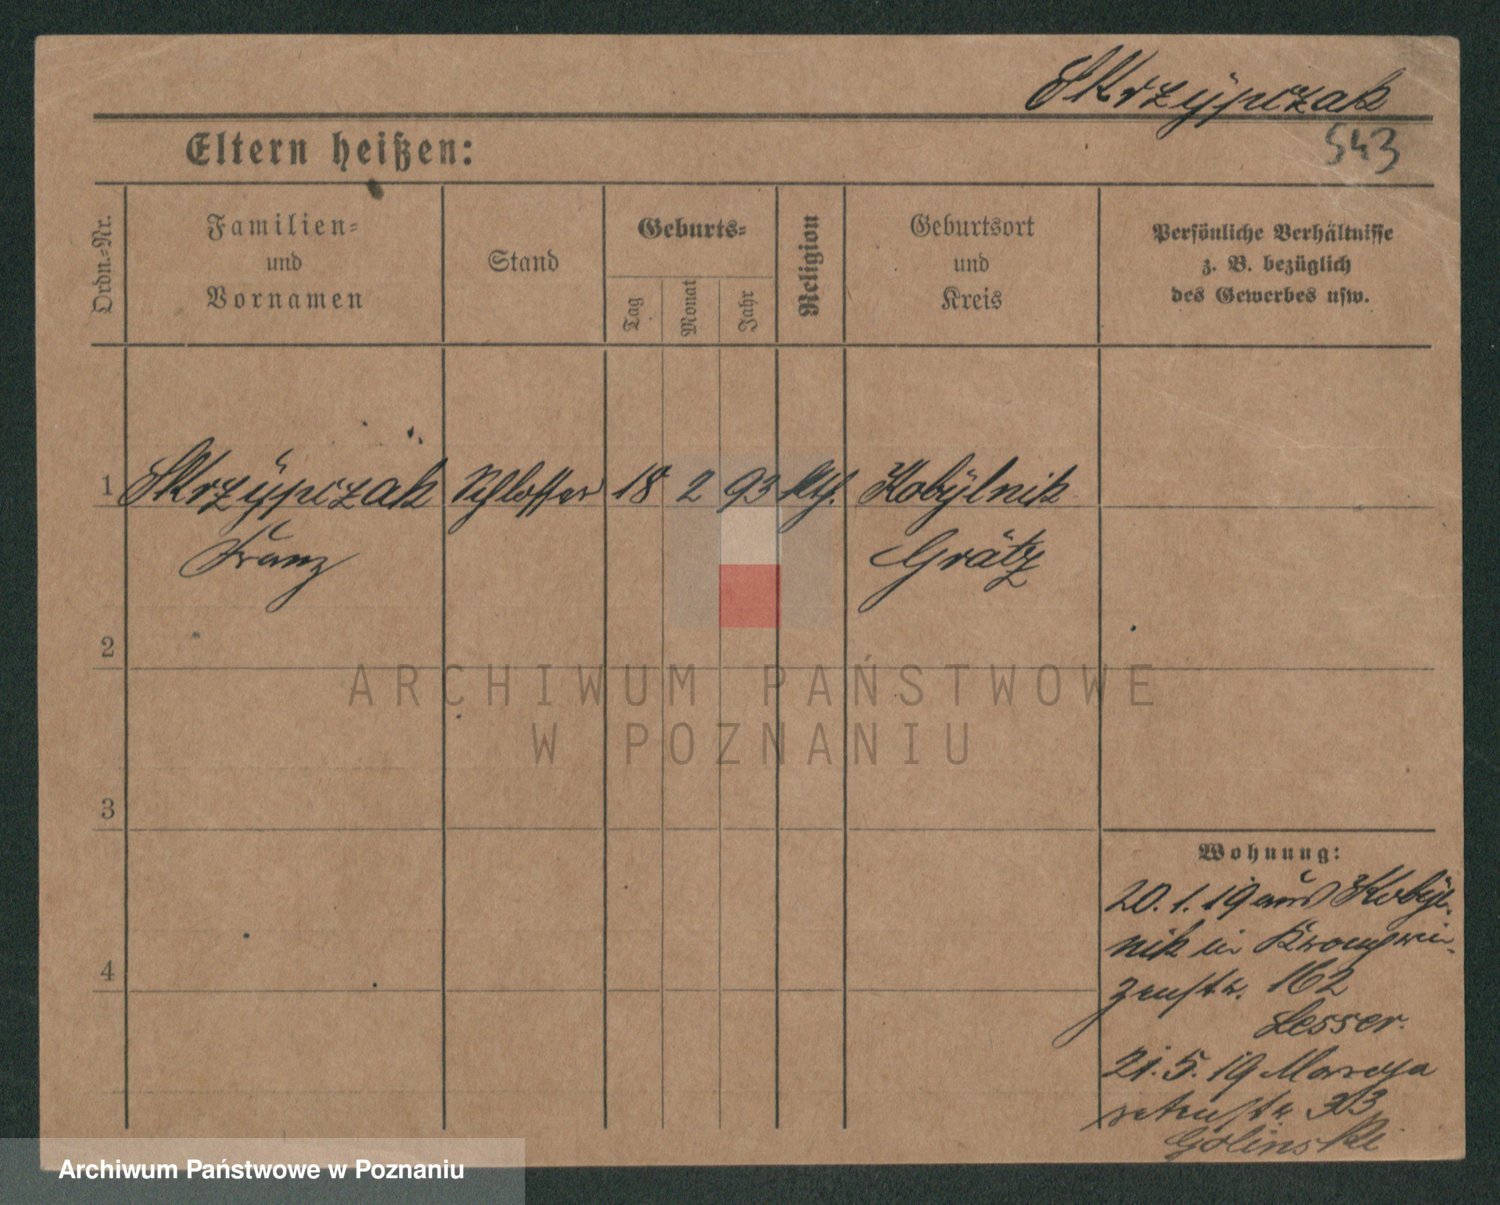 Skrzypczak
543
Eltern heißen:
Ordn.-Nr.
Familien-
und
Vornamen
Stand
Geburts-
Tag
Monat
Jahr
Religion
Geburtsort
und
Kreis
Persönliche Verhältnisse
z. B. bezüglich
des Gewerbes usw.
1 Skrzypczak Schlosser 18 2 93 kth. Kobylnik
Franz Grätz
2
3
4
Wohnung:
20.1.19 aus Kobyl-
nik in Kronprin-
zenstr. 102
Lesser.
21.5.19
33
Golinski
ARCHIWUM PAŃSTWOWE
W POZNANIU
Archiwum Państwowe w Poznaniu